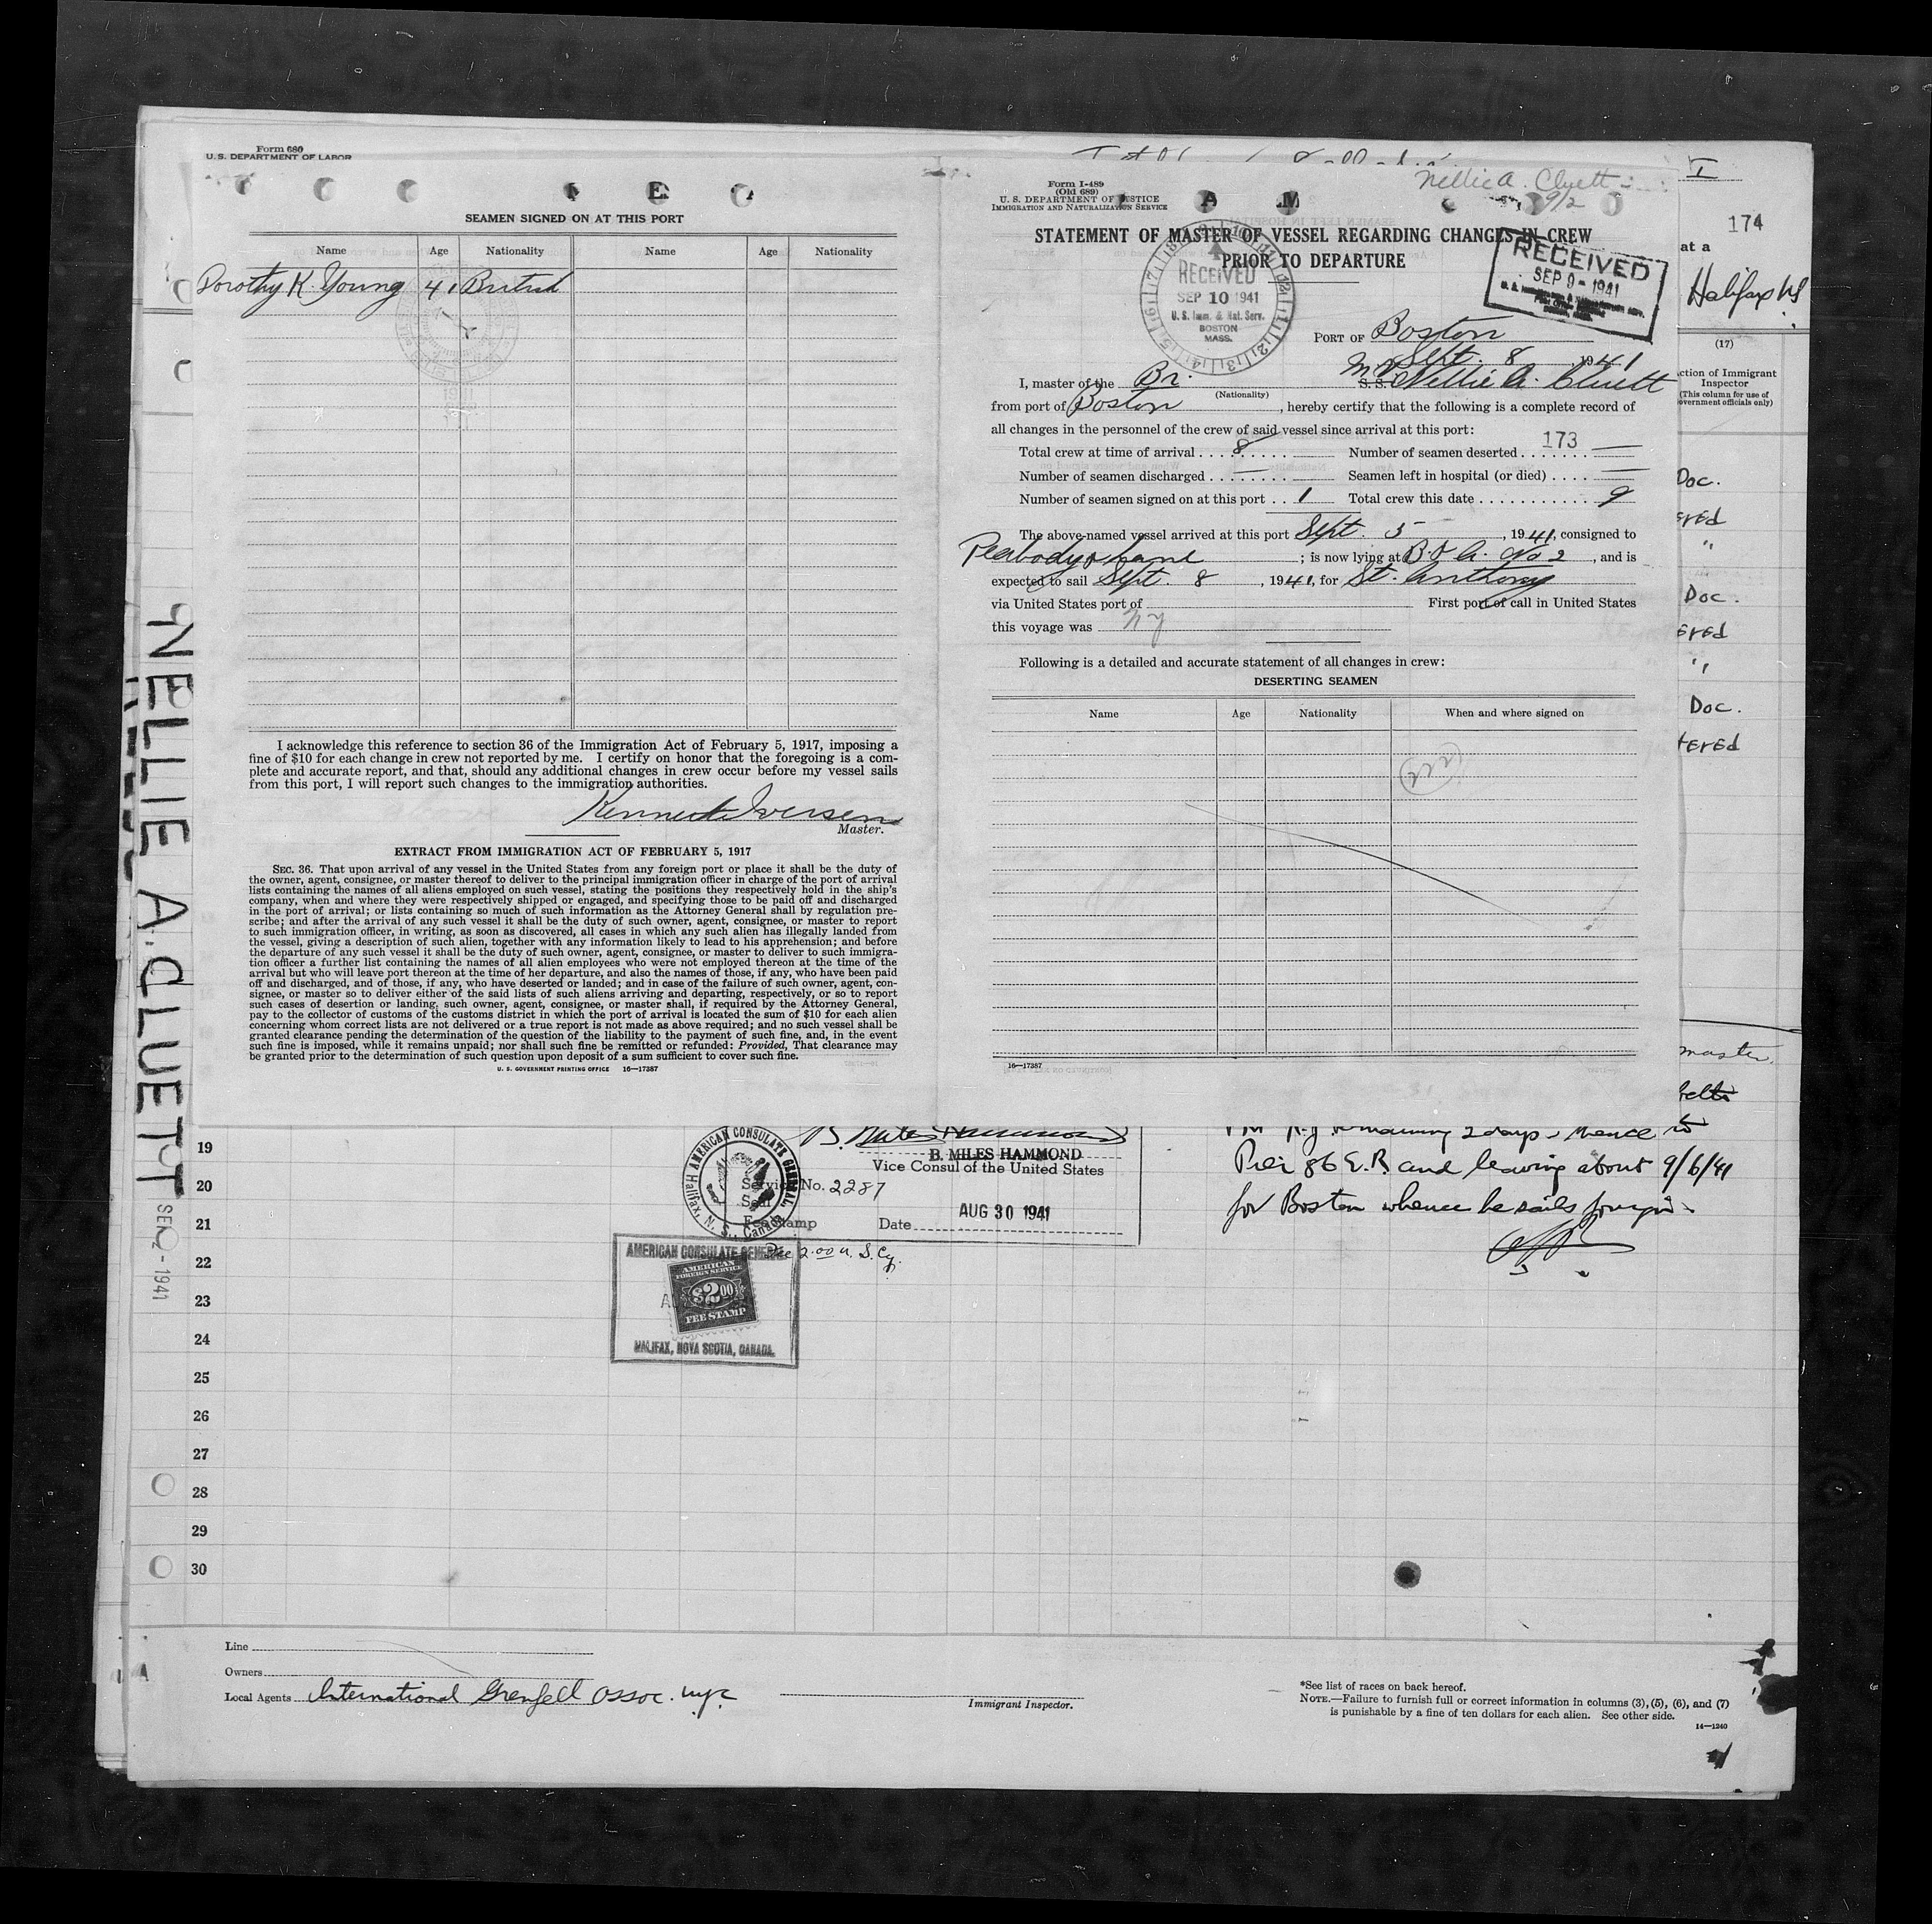 Form 680
U.S. DEPARTMENT OF LABOR
SEAMEN SIGNED ON AT THIS PORT
Name Age Nationality Name Age Nationality
Dorothy K. Young 41 British
I acknowledge this reference to section 36 of the Immigration Act of February 5, 1917, imposing a
fine of $10 for each change in crew not reported by me. I certify on honor that the foregoing is a com-
plete and accurate report, and that, should any additional changes in crew occur before my vessel sails
from this port, I will report such changes to the immigration authorities.
Kenneth Iversen
Master.
EXTRACT FROM IMMIGRATION ACT OF FEBRUARY 5, 1917
SEC. 36. That upon arrival of any vessel in the United States from any foreign port or place it shall be the duty of
the owner, agent, consignee, or master thereof to deliver to the principal immigration officer in charge of the port of arrival
lists containing the names of all aliens employed on such vessel, stating the positions they respectively hold in the ship's
company, when and where they were respectively shipped or engaged, and specifying those to be paid off and discharged
in the port of arrival; or lists containing so much of such information as the Attorney General shall by regulation pre-
scribe; and after the arrival of any such vessel it shall be the duty of such owner, agent, consignee, or master to report
to such immigration officer, in writing, as soon as discovered, all cases in which any such alien has illegally landed from
the vessel, giving a description of such alien, together with any information likely to lead to his apprehension; and before
the departure of any such vessel it shall be the duty of such owner, agent, consignee, or master to deliver to such immigra-
tion officer a further list containing the names of all alien employees who were not employed thereon at the time of the
arrival but who will leave port thereon at the time of her departure, and also the names of those, if any, who have been paid
off and discharged, and of those, if any, who have deserted or landed; and in case of the failure of such owner, agent, con-
signee, or master so to deliver either of the said lists of such aliens arriving and departing, respectively, or so to report
such cases of desertion or landing, such owner, agent, consignee, or master shall, if required by the Attorney General,
pay to the collector of customs of the customs district in which the port of arrival is located the sum of $10 for each alien
concerning whom correct lists are not delivered or a true report is not made as above required; and no such vessel shall be
granted clearance pending the determination of the question of the liability to the payment of such fine, and, in the event
such fine is imposed, while it remains unpaid; nor shall such fine be remitted or refunded: Provided, That clearance may
be granted prior to the determination of such question upon deposit of a sum sufficient to cover such fine.
U. S. GOVERNMENT PRINTING OFFICE 16—17387
Form I-489
(Old 689)
U. S. DEPARTMENT OF JUSTICE
IMMIGRATION AND NATURALIZATION SERVICE
Nellie A. Cluett
9/2
STATEMENT OF MASTER OF VESSEL REGARDING CHANGES IN CREW
PRIOR TO DEPARTURE
RECEIVED
SEP 10 1941
U. S. Imm. & Nat. Serv.
BOSTON
MASS.
RECEIVED
SEP 9 - 1941
PORT OF Boston
Sept. 8 1941
I, master of the Br. M.V. S.S. Nellie A. Cluett
(Nationality)
from port of Boston, hereby certify that the following is a complete record of
all changes in the personnel of the crew of said vessel since arrival at this port:
173
Total crew at time of arrival 8 Number of seamen deserted —
Number of seamen discharged — Seamen left in hospital (or died) —
Number of seamen signed on at this port 1 Total crew this date 9
The above-named vessel arrived at this port Sept. 5, 1941, consigned to
Peabody & Lane; is now lying at B & A. No 2, and is
expected to sail Sept. 8, 1941, for St. Anthony
via United States port of First port of call in United States
this voyage was NY
Following is a detailed and accurate statement of all changes in crew:
DESERTING SEAMEN
Name Age Nationality When and where signed on
16—17387
I
174
at a
Halifax NS
(17)
ction of Immigrant
Inspector
(This column for use of
overnment officials only)
Doc.
ered
"
Doc.
ered
"
Doc.
tered
master
NELLIE A. CLUETT
SEP 2 - 1941
19
20
21
22
23
24
25
26
27
28
29
30
AMERICAN CONSULATE GENERAL
Halifax, N. S., Canada
B. Miles Hammond
B. MILES HAMMOND
Vice Consul of the United States
Service No. 2287
Seal
Fee Stamp Date AUG 30 1941
Fee 2.00 U. S. Cy.
AMERICAN CONSULATE GENERAL
AMERICAN
FOREIGN SERVICE
$2.00
FEE STAMP
HALIFAX, NOVA SCOTIA, CANADA.
remaining 2 days, thence to
Pier 86 E.R. and leaving about 9/6/41
for Boston whence he sails foreign.
Line
Owners
Local Agents International Grenfell Assoc. NYC
Immigrant Inspector.
*See list of races on back hereof.
NOTE.—Failure to furnish full or correct information in columns (3), (5), (6), and (7)
is punishable by a fine of ten dollars for each alien. See other side.
14—1240